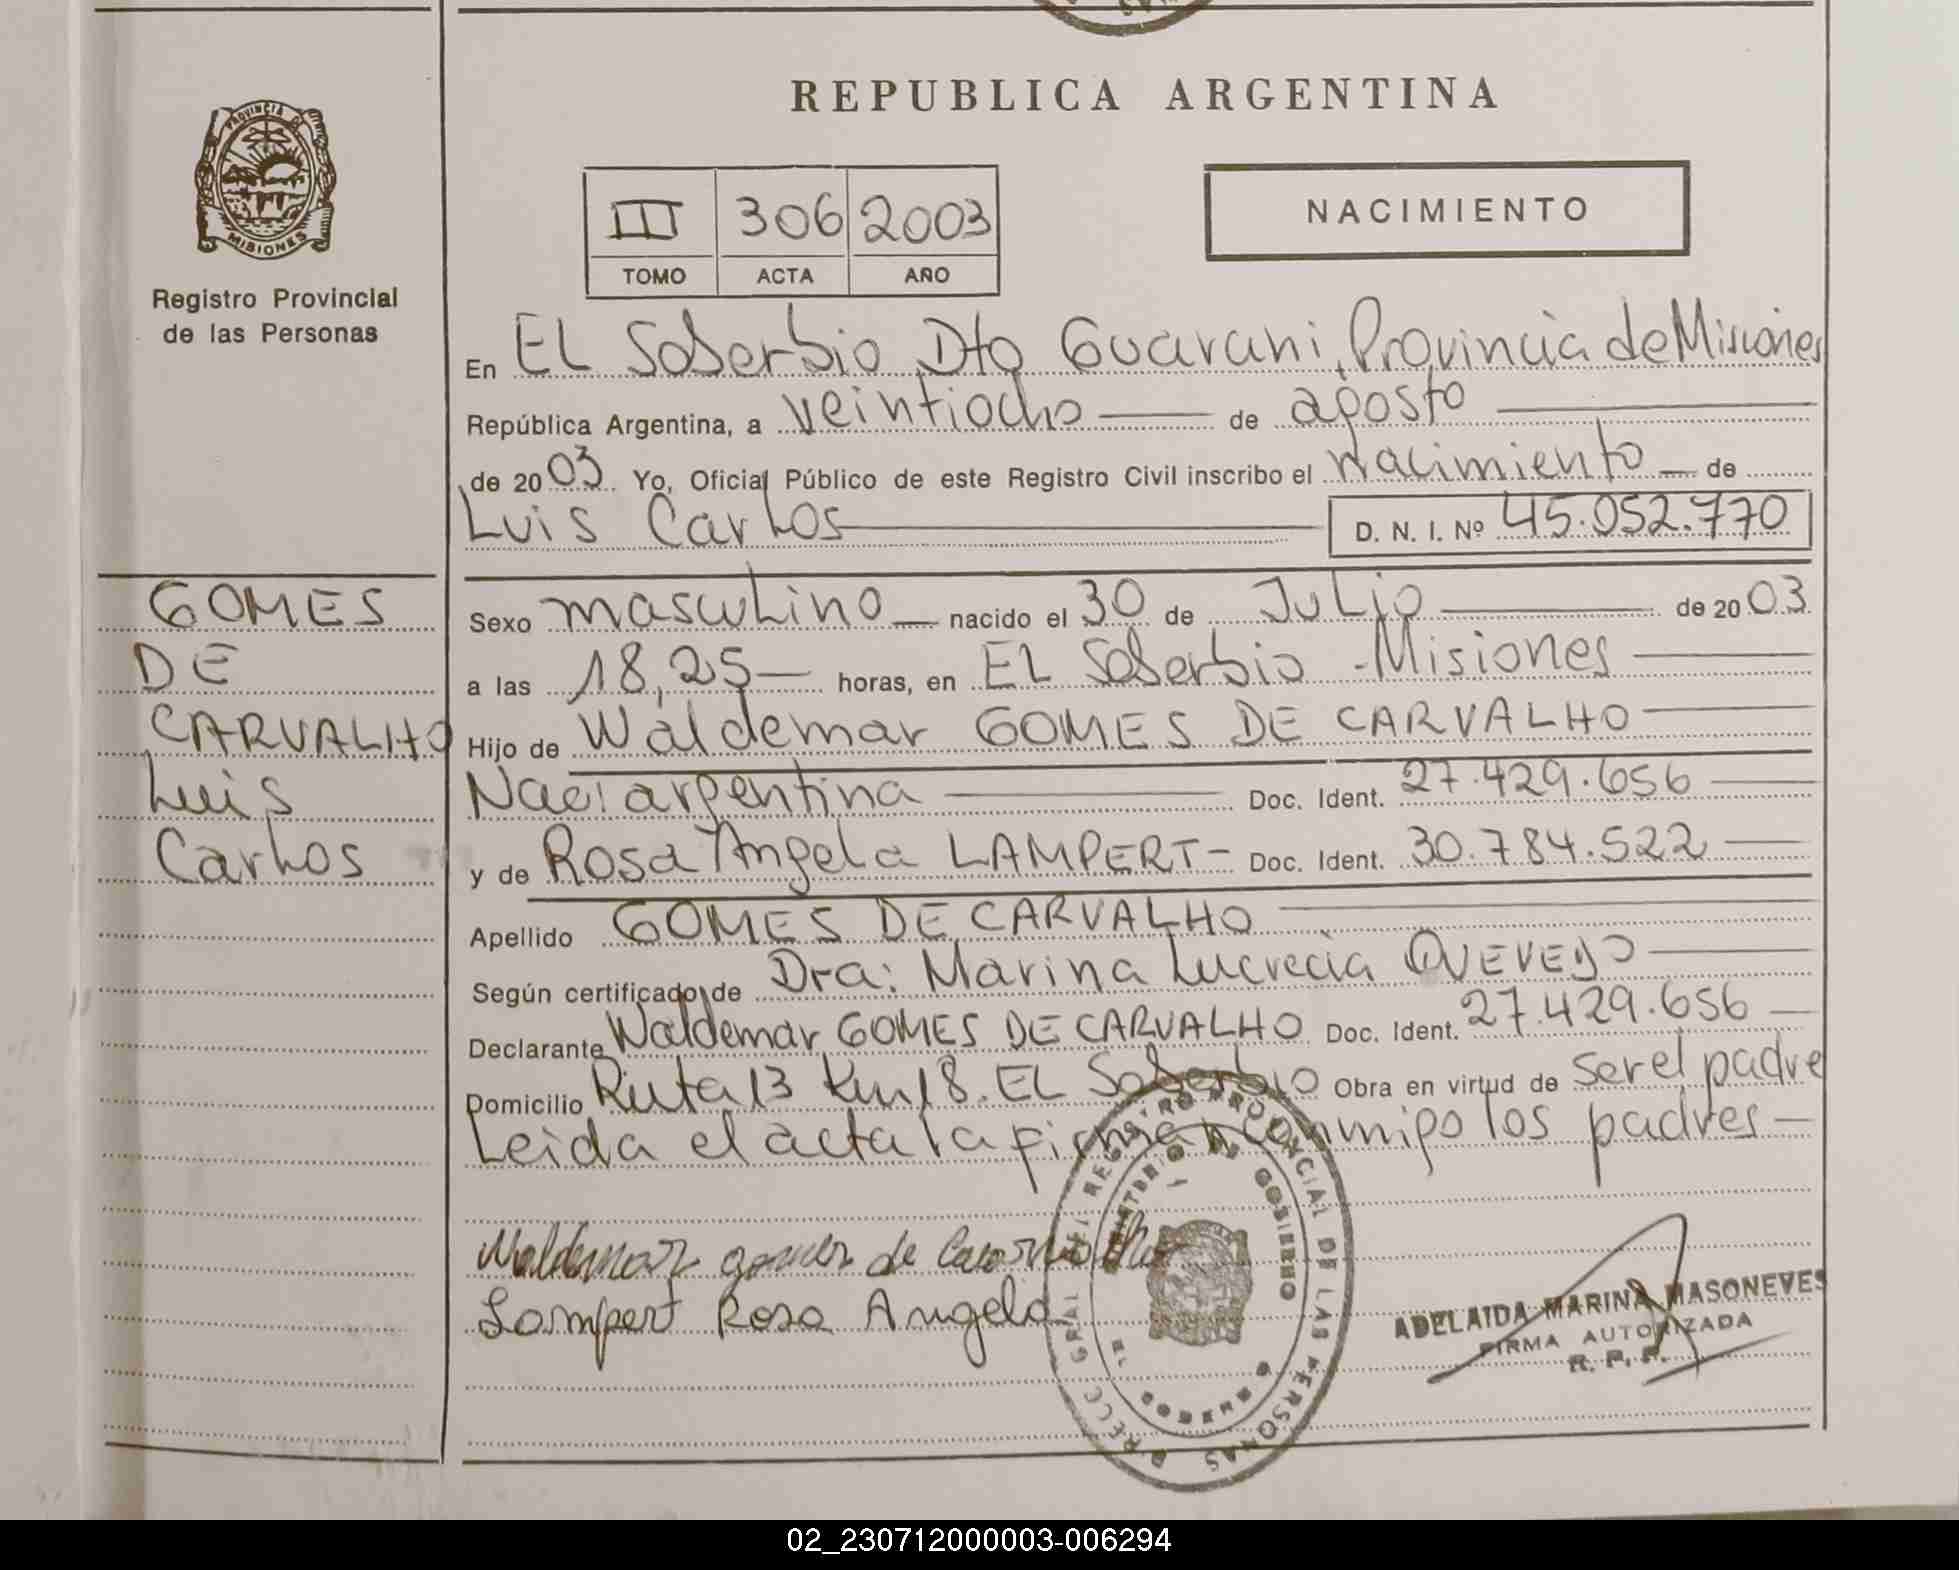 REPUBLICA ARGENTINA
PROVINCIA D
MISIONES
Registro Provincial
de las Personas
III 306 2003
TOMO ACTA AÑO
NACIMIENTO
En EL Soberbio Dto Guarani, Provincia de Misiones
República Argentina, a veintiocho de agosto
de 2003 Yo, Oficial Público de este Registro Civil inscribo el Nacimiento de
Luis Carlos D. N. I. Nº 45.052.770
GOMES
DE
CARVALHO
Luis
Carlos
Sexo masculino nacido el 30 de Julio de 2003
a las 18,25 horas, en EL Soberbio - Misiones
Hijo de Waldemar GOMES DE CARVALHO
Nac: argentina Doc. Ident. 27.429.656
y de Rosa Angela LAMPERT - Doc. Ident. 30.784.522
Apellido GOMES DE CARVALHO
Según certificado de Dra: Marina Lucrecia QUEVEDO
Declarante Waldemar GOMES DE CARVALHO Doc. Ident. 27.429.656
Domicilio Ruta 13 Km 18. EL Soberbio Obra en virtud de ser el padre
Leida el acta la firman conmigo los padres
Waldemar gomes de Carvalho
Lampert Rosa Angela
REGISTRO PROVINCIAL DE LAS PERSONAS
MINISTERIO DE GOBIERNO
ADELAIDA MARINA MASONEVES
FIRMA AUTORIZADA
R. P. P.
02_230712000003-006294